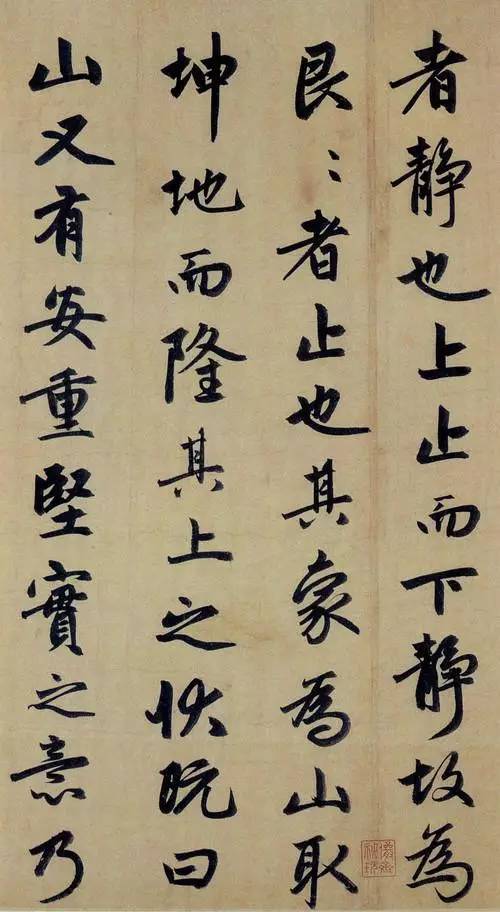 者静也上止而下静故為
艮〻者止也其象為山取
坤地而隆其上之状既曰
山又有安重堅實之意乃